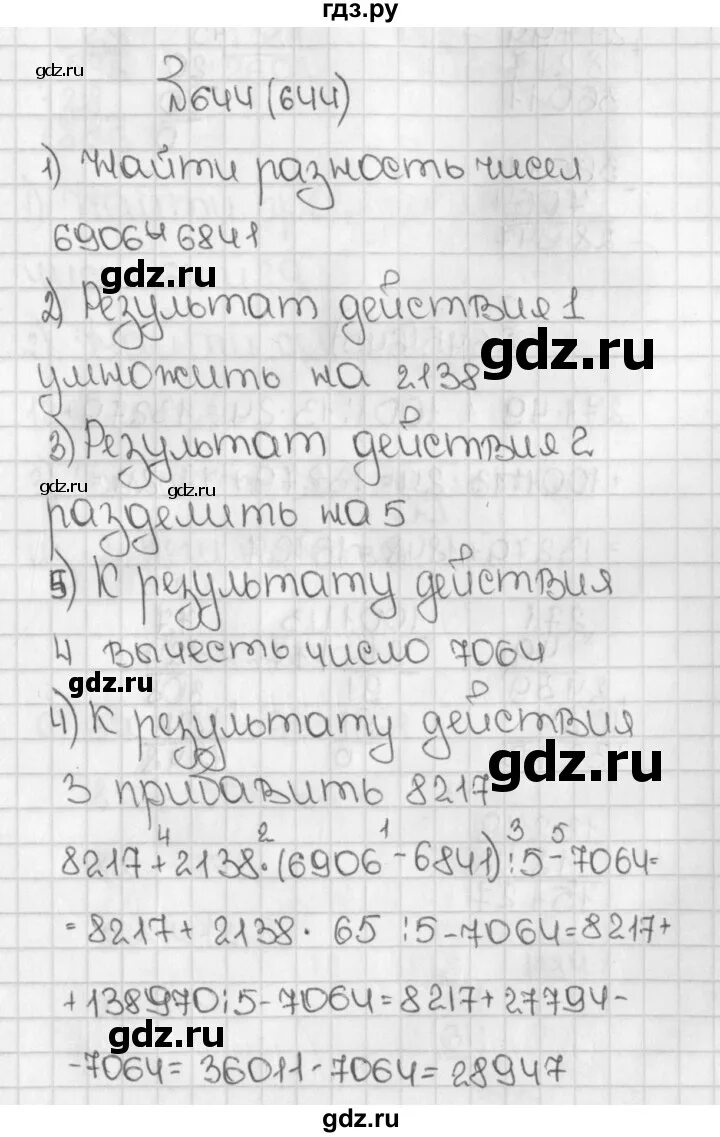 гдз.ру
gdz.ru
№644 (644)
1) Найти разность чисел
6906 и 6841
gdz.ru
2) Результат действия 1
gdz.ru
умножить на 2138
3) Результат действия 2
gdz.ru gdz.ru
разделить на 5
5) К результату действия
4 вычесть число 7064
gdz.ru
4) К результату действия
gdz.ru
3 прибавить 8217
4 2 1 3 5
8217+2138·(6906-6841):5-7064=
=8217+2138·65:5-7064=8217+
+138970:5-7064=8217+27794-
gdz.ru
-7064=36011-7064=28947
gdz.ru